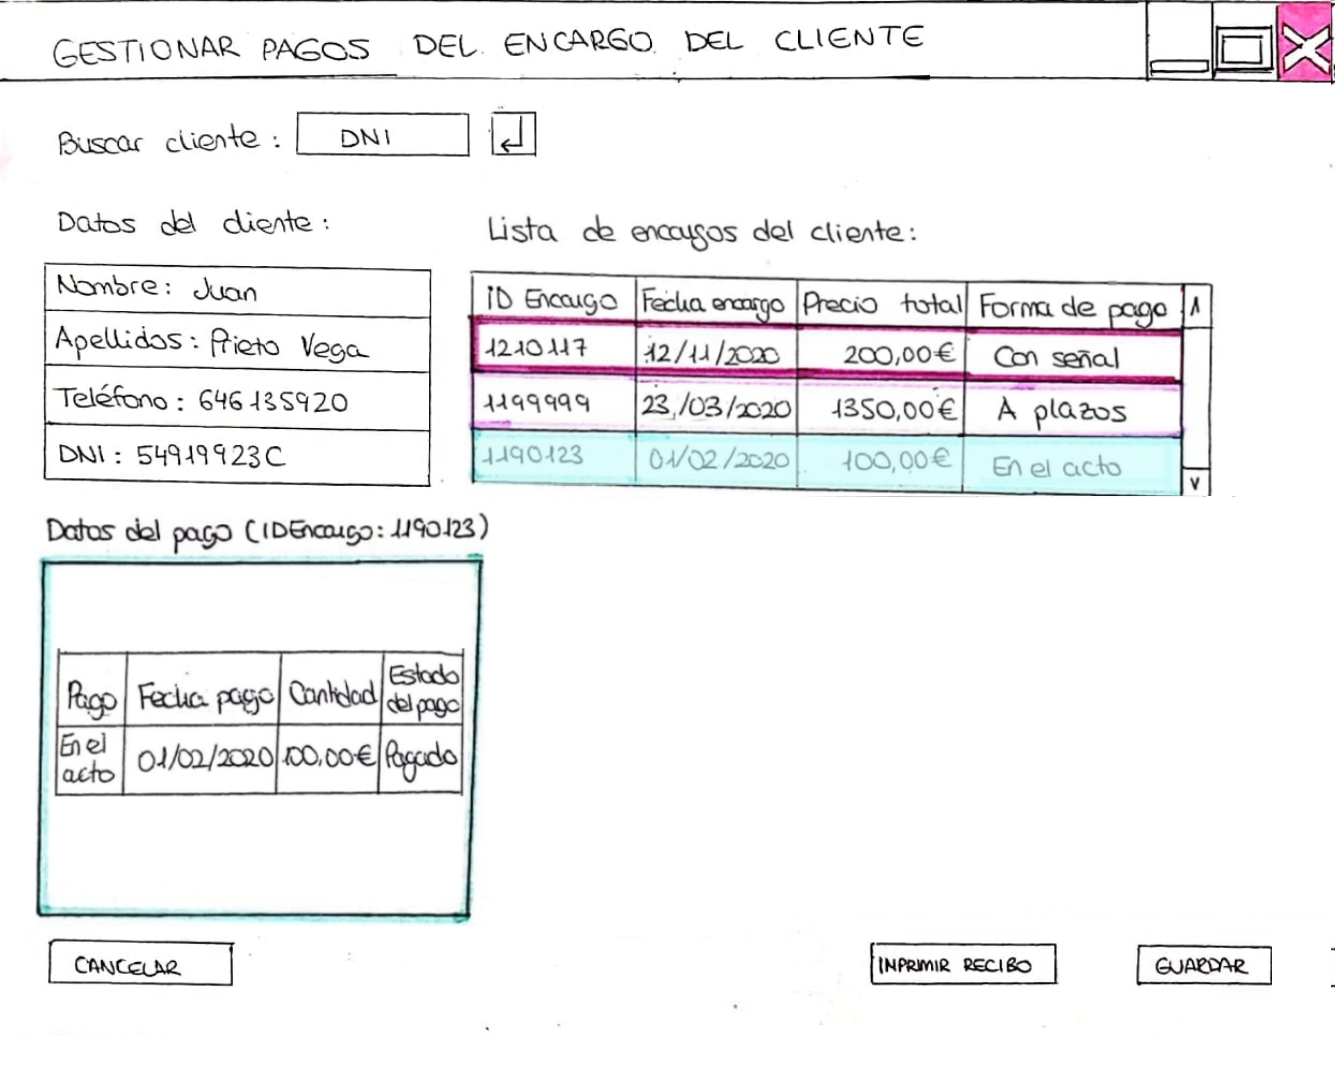 GESTIONAR PAGOS DEL ENCARGO DEL CLIENTE
Buscar cliente: DNI
Datos del cliente:
Nombre: Juan
Apellidos: Prieto Vega
Teléfono: 646135920
DNI: 54919923C
Lista de encargos del cliente:
ID Encargo Fecha encargo Precio total Forma de pago
1210117 12/11/2020 200,00€ Con señal
1199999 23/03/2020 1350,00€ A plazos
1190123 01/02/2020 100,00€ En el acto
Datos del pago (IDEncargo: 1190123)
Pago Fecha pago Cantidad Estado del pago
En el acto 01/02/2020 100,00€ Pagado
CANCELAR
IMPRIMIR RECIBO
GUARDAR